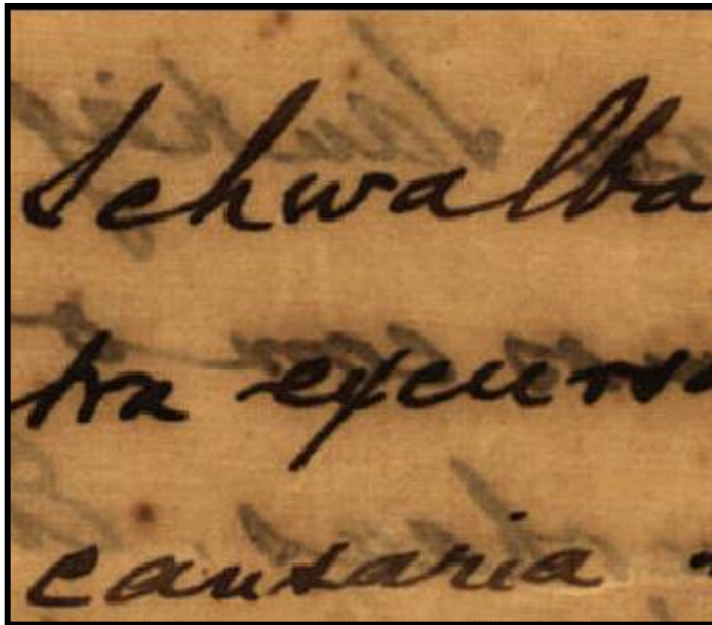 Schwalba
tra excurso
causaria